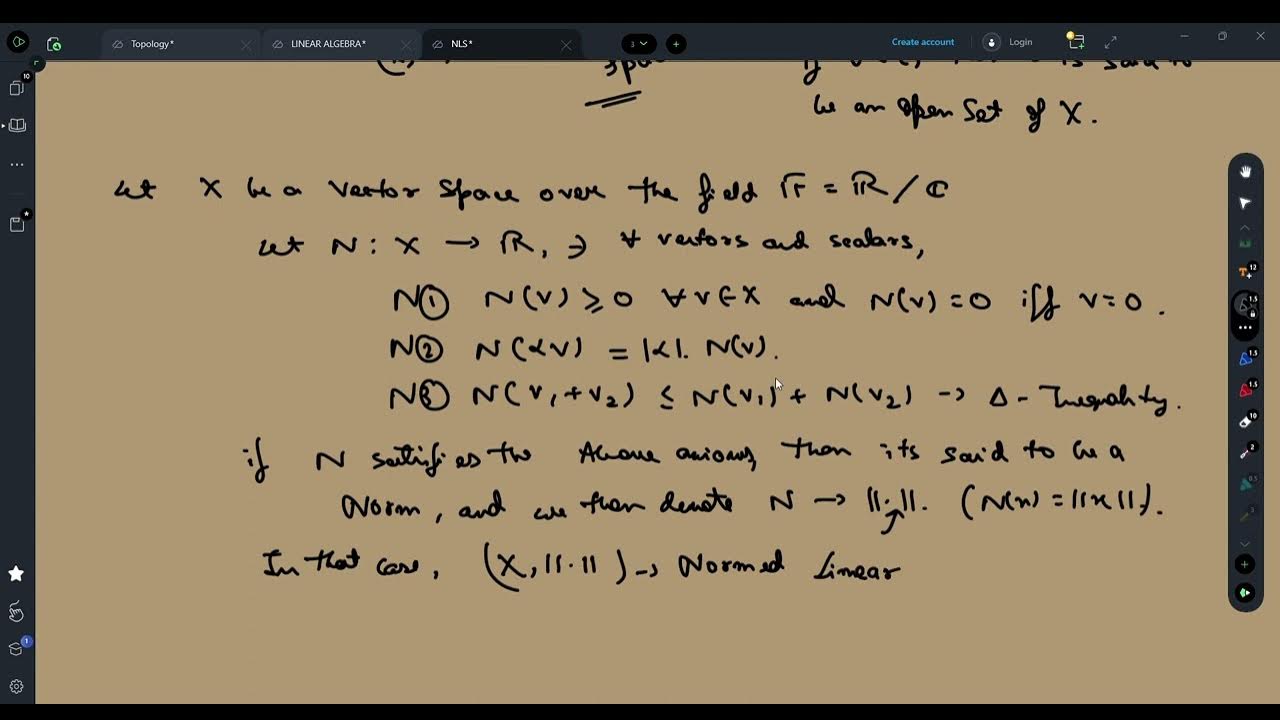 Topology*
LINEAR ALGEBRA*
NLS*
3
Create account
Login
be an open set of X.
Let X be a vector space over the field F = ℝ / ℂ
Let N : X → ℝ, ∋ ∀ vectors and scalars,
N① N(v) ≥ 0 ∀ v ∈ X and N(v) = 0 iff v = 0 .
N② N(αv) = |α|. N(v).
N③ N(v₁+v₂) ≤ N(v₁) + N(v₂) → Δ - Inequality.
if N satisfies the Above axioms, then its said to be a
Norm, and we then denote N → ||·||. (N(x) = ||x||).
In that case, (X, ||·||) → Normed Linear
10
12
1.5
1.5
1.5
10
2
0.5
3
1